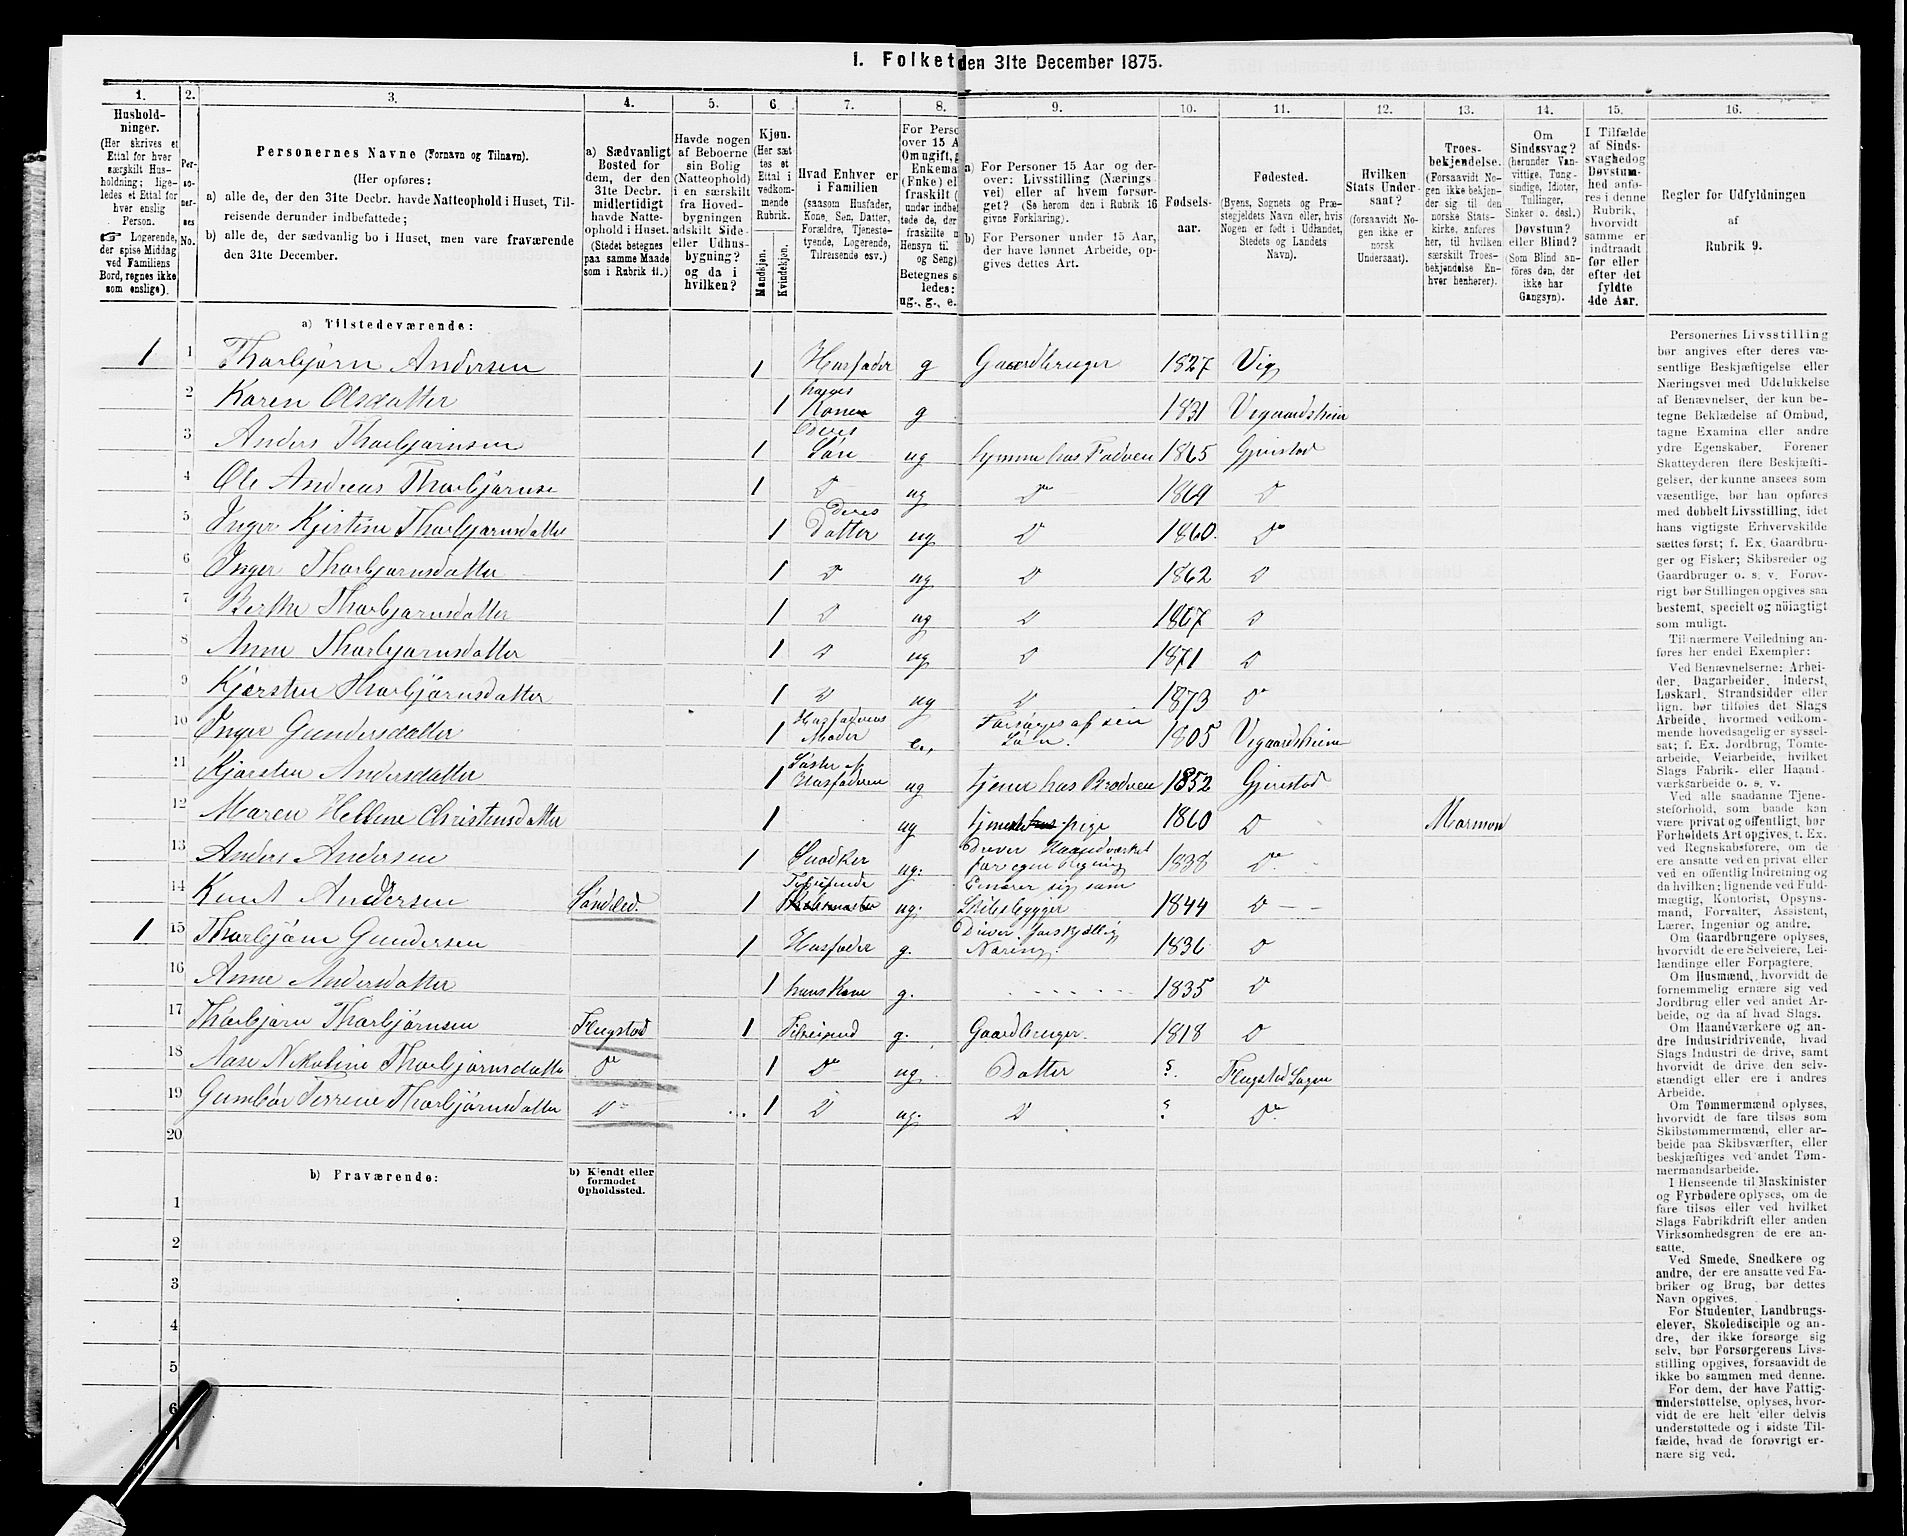 1. Folket den 31te December 1875.
1. 2. 3. 4. 5. 6. 7. 8. 9. 10. 11. 12. 13. 14. 15. 16.
Hushold-
ninger.
(Her skrives et
Ettal for hver
særskilt Hus-
holdning; lige-
ledes et Ettal for
hver enslig
Person.
☞ Logerende,
der spise Middag
ved Familiens
Bord, regnes ikke
som enslige).
Per-
so-
ner-
nes
No.
Personernes Navne (Fornavn og Tilnavn).
(Her opføres:
a) alle de, der den 31te Decbr. havde Natteophold i Huset, Til-
reisende derunder indbefattede;
b) alle de, der sædvanlig bo i Huset, men vare fraværende
den 31te December.
a) Sædvanligt
Bosted for
dem, der den
31te Decbr.
midlertidigt
havde Natte-
ophold i Huset.
(Stedet betegnes
paa samme Maade
som i Rubrik 11.)
Havde nogen
af Beboerne
sin Bolig
(Natteophold)
i en særskilt
fra Hoved-
bygningen
adskilt Side-
eller Udhus-
bygning?
og da i
hvilken?
Kjøn.
(Her sæt-
tes et
Ettal i
vedkom-
mende
Rubrik.
Mandkjøn.
Kvindekjøn.
Hvad Enhver er
i Familien
(saasom Husfader,
Kone, Søn, Datter,
Forældre, Tjeneste-
tyende, Logerende,
Tilreisende osv.)
For Perso
over 15 A
Om ugift, g
Enkema
(Enke) el
fraskilt (
under indbef
tede de, der
fraskilte m
Hensyn til
og Seng)
Betegnes s
ledes:
ug., g., e.
a) For Personer 15 Aar og der-
over: Livsstilling (Nærings-
vei) eller af hvem forsør-
get? (Se herom den i Rubrik 16
givne Forklaring).
b) For Personer under 15 Aar,
der have lønnet Arbeide, op-
gives dettes Art.
Fødsels-
aar.
Fødested.
(Byens, Sognets og Præ-
stegjeldets Navn eller, hvis
Nogen er født i Udlandet,
Stedets og Landets
Navn).
Hvilken
Stats Under-
saat?
(forsaavidt No-
gen ikke er
norsk
Undersaat).
Troes-
bekjendelse.
(Forsaavidt No-
gen ikke bekjen-
der sig til den
norske Stats-
kirke, anføres
her, til hvilken
særskilt Troes-
bekjendelse En-
hver henhører).
Om
Sindssvag?
(herunder Van-
vittige, Tung-
sindige, Idioter,
Sinker o. desl.)
Døvstum?
eller Blind?
(Som Blind an-
føres den, der
ikke har
Gangsyn).
I Tilfælde
af Sinds-
svaghed og
Døvstum-
hed anfø-
res i denne
Rubrik,
hvorvidt
samme er
indtraadt
før eller
efter det
fyldte
4de Aar.
Regler for Udfyldningen
af
Rubrik 9.
a) Tilstedeværende:
1 1 Thorbjørn Andersen 1 Husfader g Gaardbruger 1827 Vig
2 Karen Olsdatter 1 hans Kone g 1831 Vegaardsheia
3 Anders Thorbjørnsen 1 Deres Søn ug hjemme hos Fadren 1865 Gjerstad
4 Ole Andreas Thorbjørnse 1 D ug Do 1869 D
5 Inger Kjerstine Thorbjørnsdatter 1 deres Datter ug D 1860 Do
6 Inger Thorbjørnsdatter 1 D ug D 1862 D
7 Berthe Thorbjørnsdatter 1 D ug D 1867 D
8 Anne Thorbjørnsdatter 1 D ug D 1871 D
9 Kjersten Thorbjørnsdatter 1 D ug D 1873 Do
10 Inger Gundersdatter 1 Husfaderens Moder e. Forsørges af sin Søn. 1805 Vegaardsheia
11 Kjersten Andersdatter 1 Søster af Husfaderen ug tjener hos Brodren 1852 Gjerstad
12 Maren Hellene Christensdatter 1 ug pige 1860 D Mormon
13 Anders Andersen 1 Snedker ug. Driver Haandværket for egen Regning 1838 Do
14 Knut Andersen Søndeled 1 Tilreisende ug. Ernærer sig som Skibsbygger 1844 D
1 15 Thorbjørn Gundersen 1 Husfader g. Driver forskjellig Næring. 1836 D
16 Anne Andersdatter 1 hans Kone g. 1835 D
17 Thorbjørn Thorbjørnsen Flugstad 1 Tilreisend g. Gaardbruger. 1818 D
18 Aase Nikoline Thorbjørnsdatter Do 1 Do ug Datter ?. Flugstad Sogn
19 Gunbør Terrene Thorbjørnsdatter Do 1 D ug. D ? Do
20
b) Fraværende:
b) Kjendt eller
formodet
Opholdssted.
1
2
3
4
5
6
Personernes Livsstilling
bør angives efter deres væ-
sentlige Beskjæftigelse eller
Næringsvei med Udelukkelse
af Benævnelser, der kun be-
tegne Beklædelse af Ombud,
tagne Examina eller andre
ydre Egenskaber. Forener
Skatteyderen flere Beskjæfti-
gelser, der kunne ansees som
væsentlige, bør han opføres
med dobbelt Livsstilling, idet
hans vigtigste Erhvervskilde
sættes først; f. Ex. Gaardbru-
ger og Fisker; Skibsreder og
Gaardbruger o. s. v. Forøv-
rigt bør Stillingen opgives saa
bestemt, specielt og nøiagtigt
som muligt.
Til nærmere Veiledning an-
føres her endel Exempler:
Ved Benævnelserne: Arbei-
der, Dagarbeider, Inderst,
Løskarl, Strandsidder eller
lign. bør tilføies det Slags
Arbeide, hvormed vedkom-
mende hovedsagelig er syssel-
sat; f. Ex. Jordbrug, Tomte-
arbeide, Veiarbeide, hvilket
Slags Fabrik- eller Haand-
værksarbeide o. s. v.
Ved alle saadanne Tjene-
steforhold, som baade kan
være privat og offentligt, bør
Forholdets Art opgives, f. Ex.
ved Regnskabsførere, om de
ere ansatte ved en privat eller
ved en offentlig Indretning og
da hvilken; lignende ved Fuld-
mægtig, Kontorist, Opsyns-
mand, Forvalter, Assistent,
Lærer, Ingeniør og andre.
Om Gaardbrugere oplyses,
hvorvidt de ere Selveiere, Lei-
lændinge eller Forpagtere.
Om Husmænd, hvorvidt de
fornemmelig ernære sig ved
Jordbrug eller ved andet Ar-
beide, og da af hvad Slags.
Om Haandværkere og an-
dre Industridrivende, hvad
Slags Industri de drive, samt
hvorvidt de drive den selv-
stændigt eller ere i andres
Arbeide.
Om Tømmermænd oplyses,
hvorvidt de fare tilsøs som
Skibstømmermænd, eller ar-
beide paa Skibsværfter, eller
beskjæftiges ved andet Tøm-
mermandsarbeide.
I Henseende til Maskinister
og Fyrbødere oplyses, om de
fare tilsøs eller ved hvilket
Slags Fabrikdrift eller anden
Virksomhedsgren de ere an-
satte.
Ved Smede, Snedkere og
andre, der ere ansatte ved Fa-
briker og Brug, bør dettes
Navn opgives.
For Studenter, Landbrugs-
elever, Skoledisciple og an-
dre, der ikke forsørge sig
selv, bør Forsørgerens Livs-
stilling opgives, forsaavidt de
ikke bo sammen med denne.
For dem, der have Fattig-
understøttelse, oplyses, hvor-
vidt de ere helt eller delvis
understøttede og i sidste Til-
fælde, hvad de forøvrigt er-
nære sig ved.